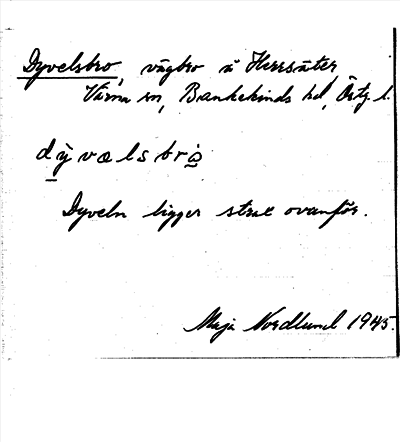 Dyvelsbro, vägbro å Herrsäter,
Värna sn, Bankekinds hd, Östg. l.
dỳvælsbrò
Dyveln ligger strax ovanför.
Maja Nordlund 1945.